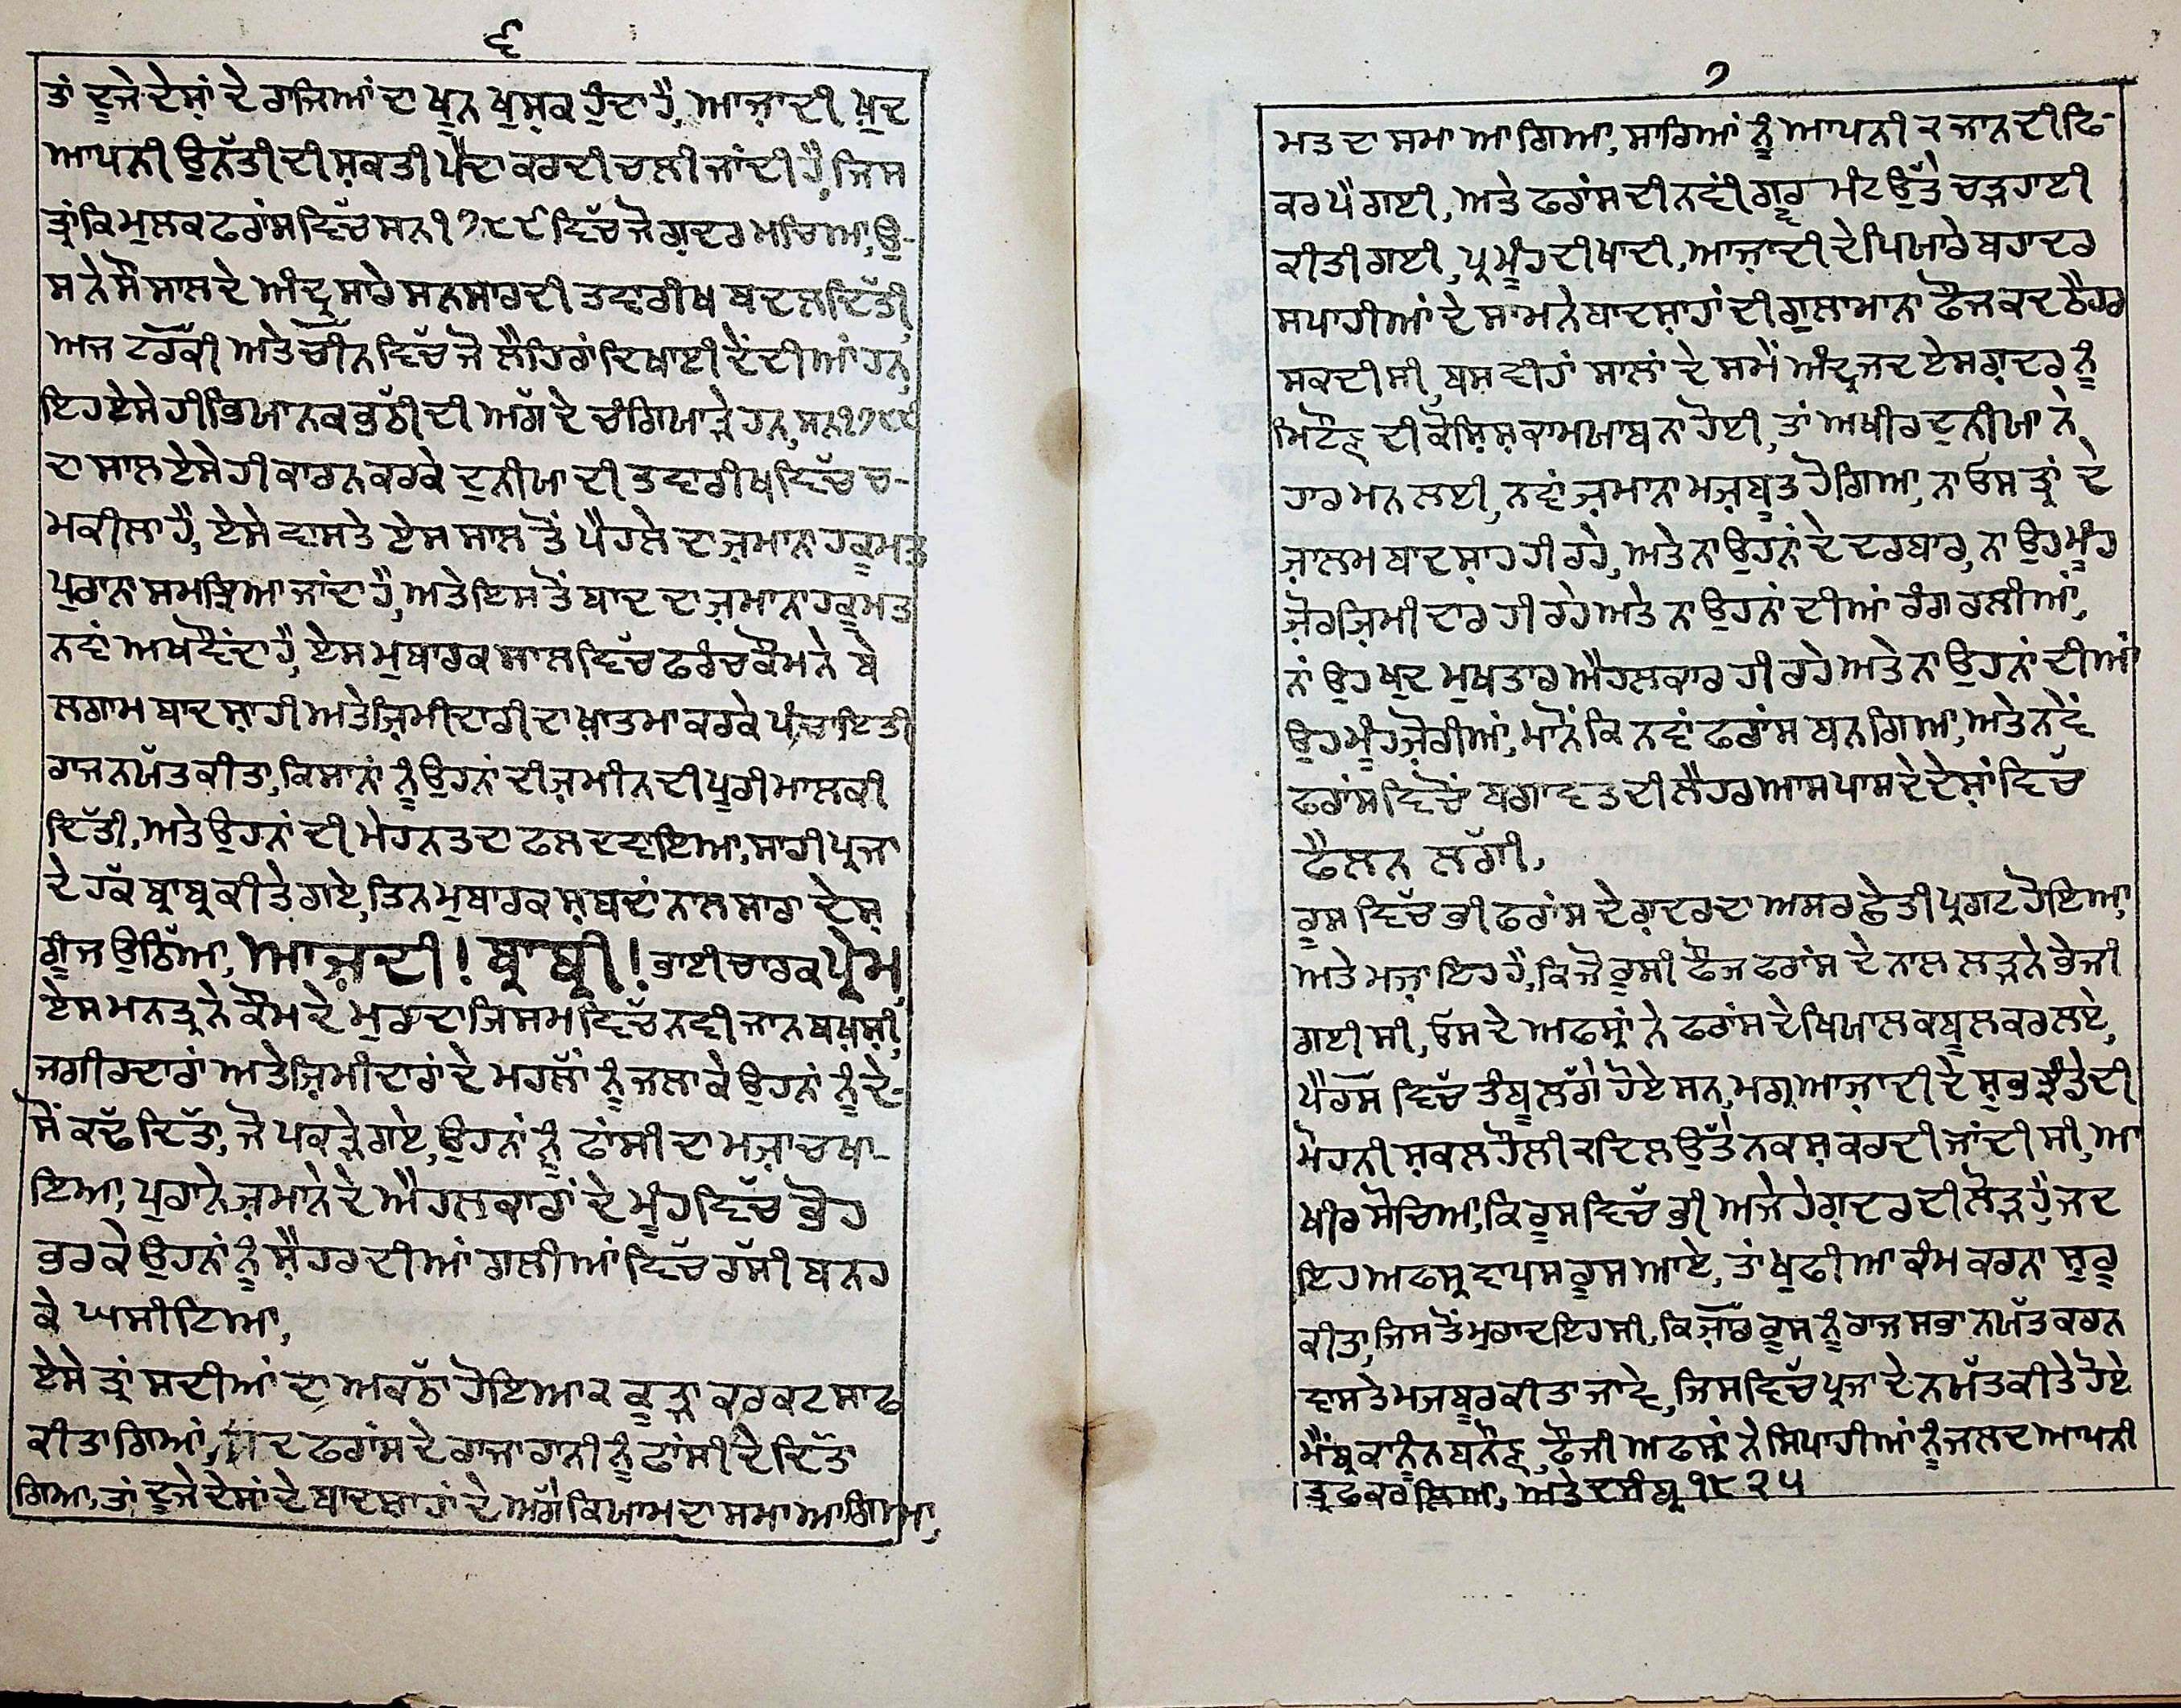 ੬
ਤਾਂ ਦੂਜੇ ਦੇਸ਼ਾਂ ਦੇ ਰਾਜਿਆਂ ਦਾ ਖੂਨ ਖੁਸ਼ਕ ਹੁੰਦਾ ਹੈ, ਆਜ਼ਾਦੀ ਖ਼ੁਦ
ਆਪਨੀ ਉਨੱਤੀ ਦੀ ਸ਼ਕਤੀ ਪੈਦਾ ਕਰਦੀ ਚਲੀ ਜਾਂਦੀ ਹੈ, ਜਿਸ
ਤ੍ਰਾਂ ਕਿ ਮੁਲਕ ਫਰਾਂਸ ਵਿੱਚ ਸਨ ੧੭੮੯ ਵਿੱਚ ਜੋ ਗ਼ਦਰ ਮਚਿਆ, ਉ-
ਸ ਨੇ ਸੌ ਸਾਲ ਦੇ ਅੰਦ੍ਰ ਸਾਰੇ ਸਨਸਾਰ ਦੀ ਤਵਾਰੀਖ ਬਦਲ ਦਿੱਤੀ,
ਅਜ ਟਰੱਕੀ ਅਤੇ ਚੀਨ ਵਿੱਚ ਜੋ ਲੈਹਿਰਾਂ ਦਿਖਾਈ ਦੇਂਦੀਆਂ ਹਨ,
ਇਹ ਏਸੇ ਹੀ ਭਿਯਾਨਕ ਭਠੀ ਦੀ ਅੱਗ ਦੇ ਚੰਗਿਯਾੜੇ ਹਨ, ਸਨ ੧੭੮੯
ਦਾ ਸਾਲ ਏਸੇ ਹੀ ਕਾਰਨ ਕਰਕੇ ਦੁਨੀਯਾ ਦੀ ਤਵਾਰੀਖ ਵਿੱਚ ਚ-
ਮਕੀਲਾ ਹੈ, ਏਸੇ ਵਾਸਤੇ ਏਸ ਸਾਲ ਤੋਂ ਪੈਹਲੇ ਦਾ ਜ਼ਮਾਨਾ ਹਕੂਮਤ
ਪੁਰਾਨਾ ਸਮਝਿਆ ਜਾਂਦਾ ਹੈ, ਅਤੇ ਇਸ ਤੋਂ ਬਾਦ ਦਾ ਜ਼ਮਾਨਾ ਹਕੂਮਤ
ਨਵਾਂ ਅਖਵੌਂਦਾ ਹੈ, ਏਸ ਮੁਬਾਰਕ ਸਾਲ ਵਿੱਚ ਫਰੰਚ ਕੌਮ ਨੇ ਬੇ
ਲਗਾਮ ਬਾਦਸ਼ਾਹੀ ਅਤੇ ਜ਼ਿਮੀਦਾਰੀ ਦਾ ਖ਼ਾਤਮਾ ਕਰਕੇ ਪੰਚਾਇਤੀ
ਰਾਜ ਨਯੱਤ ਕੀਤਾ, ਕਿਸਾਨਾਂ ਨੂੰ ਉਹਨਾਂ ਦੀ ਜ਼ਮੀਨ ਦੀ ਪੂਰੀ ਮਾਲਕੀ
ਦਿੱਤੀ, ਅਤੇ ਉਹਨਾਂ ਦੀ ਮੇਹਨਤ ਦਾ ਫਲ ਦਵਾਇਆ, ਸਾਰੀ ਪ੍ਰਜਾ
ਦੇ ਹੱਕ ਬ੍ਰਾਬ੍ਰ ਕੀਤੇ ਗਏ, ਤਿਨ ਮੁਬਾਰਕ ਸ਼ਬਦਾਂ ਨਾਲ ਸਾਰਾ ਦੇਸ਼
ਗੂੰਜ ਉਠਿੱਆ, ਆਜ਼ਾਦੀ! ਬ੍ਰਾਬ੍ਰੀ! ਭਾਈਚਾਰਕ ਪ੍ਰੇਮ,
ਏਸ ਮਨਤ੍ਰ ਨੇ ਕੌਮ ਦੇ ਮੁਰਦਾ ਜਿਸਮ ਵਿੱਚ ਨਵੀ ਜਾਨ ਬਖ਼ਸ਼ੀ,
ਜਗੀਰਦਾਰਾਂ ਅਤੇ ਜ਼ਿਮੀਦਾਰਾਂ ਦੇ ਮਹਲਾਂ ਨੂੰ ਜਲਾਕੇ ਉਹਨਾਂ ਨੂੰ ਦੇ-
ਸੋਂ ਕਢੱ ਦਿੱਤਾ, ਜੋ ਪਕੜੇ ਗਏ, ਉਹਨਾਂ ਨੂੰ ਫਾਂਸੀ ਦਾ ਮਜ਼ਾ ਚਖਾ-
ਇਆ, ਪੁਰਾਨੇ ਜ਼ਮਾਨੇ ਦੇ ਐਹਲਕਾਰਾਂ ਦੇ ਮੂੰਹ ਵਿੱਚ ਭੋਹ
ਭਰਕੇ ਉਹਨਾਂ ਨੂੰ ਸ਼ੈਹਰ ਦੀਆਂ ਗਲੀਆਂ ਵਿੱਚ ਰੱਸੀ ਬਨਹ
ਕੇ ਘਸੀਟਿਆ,
ਏਸੇ ਤ੍ਰਾਂ ਸਦੀਆਂ ਦਾ ਅਕਠਾਂ ਹੋਇਆ੨ ਕੂੜਾ ਕਰਕਟ ਸਾਫ
ਕੀਤਾ ਗਿਆ, ਦ ਫਰਾਂਸ ਦੇ ਰਾਜਾ ਰਾਨੀ ਨੂੰ ਫਾਂਸੀ ਦੇ ਦਿੱਤਾ
ਗਿਆ, ਤਾਂ ਦੂਜੇ ਦੇਸਾਂ ਦੇ ਬਾਦਸ਼ਾਹਾਂ ਦੇ ਅੱਗੇ ਕਿਯਾਮ ਦਾ ਸਮਾ ਆ ਗਿਆ,
੭
ਮਤ ਦਾ ਸਮਾ ਆ ਗਿਆ, ਸਾਰਿਆਂ ਨੂੰ ਆਪਨੀ੨ ਜਾਨ ਦੀ ਫਿ-
ਕਰ ਪੈ ਗਈ, ਅਤੇ ਫਰਾਂਸ ਦੀ ਨਵੀਂ ਗਵ੍ਰਮੰਟ ਉੱਤੇ ਚੜਹਾਈ
ਕੀਤੀ ਗਈ, ਪ੍ਰ ਮੂੰਹ ਦੀ ਖਾਦੀ, ਆਜ਼ਾਦੀ ਦੇ ਪਿਯਾਰੇ ਬਹਾਦਰ
ਸਪਾਹੀਆਂ ਦੇ ਸਾਮਨੇ ਬਾਦਸ਼ਾਹਾਂ ਦੀ ਗੁਲਾਮਾਨਾ ਫੌਜ ਕਦ ਠੈਹਰ
ਸਕਦੀ ਸੀ, ਬਸ ਵੀਹਾਂ ਸਾਲਾਂ ਦੇ ਸਮੇਂ ਅੰਦ੍ਰ ਜਦ ਏਸ ਗ਼ਦਰ ਨੂੰ
ਮਿਟੌਣ ਦੀ ਕੋਸ਼ਿਸ਼ ਕਾਮਯਾਬ ਨਾ ਹੋਈ, ਤਾਂ ਅਖੀਰ ਦੁਨੀਯਾ ਨੇ
ਹਾਰ ਮਨ ਲਈ, ਨਵਾਂ ਜ਼ਮਾਨਾ ਮਜ਼ਬੂਤ ਹੋਗਿਆ, ਨਾ ਓਸ ਤ੍ਰਾਂ ਦੇ
ਜ਼ਾਲਮ ਬਾਦਸ਼ਾਹ ਹੀ ਰਹੇ, ਅਤੇ ਨਾ ਉਹਨਾਂ ਦੇ ਦਰਬਾਰ, ਨਾ ਉਹ ਮੂੰਹ
ਜ਼ੋਰ ਜ਼ਿਮੀਦਾਰ ਹੀ ਰਹੇ ਅਤੇ ਨਾ ਉਹਨਾਂ ਦੀਆਂ ਰੰਗ ਰਲੀਆਂ,
ਨਾਂ ਉਹ ਖੁਦ ਮੁਖਤਾਰ ਐਹਲਕਾਰ ਹੀ ਰਹੇ ਅਤੇ ਨਾ ਉਹਨਾਂ ਦੀਆਂ
ਉਹ ਮੂੰਹਜ਼ੋਰੀਆਂ, ਮਾਨੋਂ ਕਿ ਨਵਾਂ ਫਰਾਂਸ ਬਨ ਗਿਆ, ਅਤੇ ਨਵੇਂ
ਫਰਾਂਸ ਵਿਚੋਂ ਬਗਾਵਤ ਦੀ ਲੈਹਰ ਆਸ ਪਾਸ ਦੇ ਦੇਸ਼ਾਂ ਵਿੱਚ
ਫੈਲਨ ਲੱਗੀ,
ਰੂਸ ਵਿੱਚ ਭੀ ਫਰਾਂਸ ਦੇ ਗ਼ਦਰ ਦਾ ਅਸਰ ਛੇਤੀ ਪ੍ਰਗਟ ਹੋਇਆ,
ਅਤੇ ਮਜ਼ਾ ਇਹ ਹੈ, ਕਿ ਜੋ ਰੂਸੀ ਫੌਜ ਫਰਾਂਸ ਦੇ ਨਾਲ ਲੜਨੇ ਭੇਜੀ
ਗਈ ਸੀ, ਓਸ ਦੇ ਅਫਸ੍ਰਾਂ ਨੇ ਫਰਾਂਸ ਦੇ ਖਿਯਾਲ ਕਬੂਲ ਕਰ ਲਏ,
ਪੈਰਸ ਵਿੱਚ ਤੰਬੂ ਲੱਗੇ ਹੋਏ ਸਨ, ਮਗ੍ਰ ਆਜ਼ਾਦੀ ਦੇ ਸ਼ੁਭ ਝੰਡੇ ਦੀ
ਮੋਹਨੀ ਸ਼ਕਲ ਹੌਲੀ੨ ਦਿਲ ਉੱਤੇ ਨਕਸ਼ ਕਰਦੀ ਜਾਂਦੀ ਸੀ, ਅ
ਖੀਰ ਸੋਚਿਆ, ਕਿ ਰੂਸ ਵਿੱਚ ਭੀ ਅਜੇਹੇ ਗ਼ਦਰ ਦੀ ਲੋੜ ਹੈ, ਜਦ
ਇਹ ਅਫਸ੍ਰ ਵਾਪਸ ਰੂਸ ਆਏ, ਤਾਂ ਖੁਫੀਆ ਕੰਮ ਕਰਨਾ ਸ਼ੁਰੂ
ਕੀਤਾ, ਜਿਸ ਤੋਂ ਮੁਰਾਦ ਇਹ ਸੀ, ਕਿ ਜ਼ਾਰ ਰੂਸ ਨੂੰ ਰਾਜ ਸਭਾ ਨਯੱਤ ਕਰਨ
ਵਾਸਤੇ ਮਜਬੂਰ ਕੀਤਾ ਜਾਵੇ, ਜਿਸ ਵਿੱਚ ਪ੍ਰਜਾ ਦੇ ਨਯੱਤ ਕੀਤੇ ਹੋਏ
ਮੈਂਬ੍ਰ ਕਾਨੂੰਨ ਬਨੌਣ, ਫੌਜੀ ਅਫਸ੍ਰਾਂ ਨੇ ਸਿਪਾਹੀਆਂ ਨੂੰ ਜਲਦ ਆਪਨੀ
ਤ੍ਰਫ ਕਰ ਲਿਆ, ਅਤੇ ਦਸੰਬ੍ਰ ੧੮੨੫